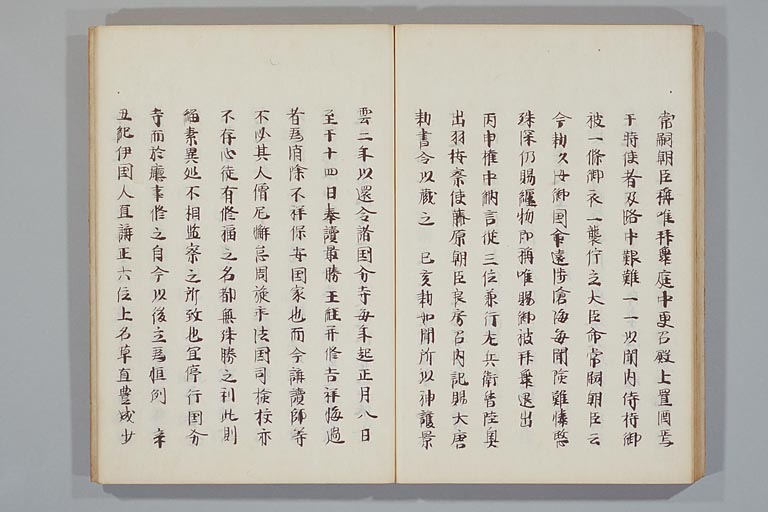 常嗣朝臣稱唯拜舞庭中更召殿上置酒焉
于時使者及路中艱難一一以聞内侍持御
被一條御衣一襲行立大臣命常嗣朝臣云
今勅久汝御国命遠渉滄海毎聞険難憐愍
殊深仍賜纏物即稱唯賜御被拜舞退出
丙申権中納言従三位兼行左兵衛督陸奥
出羽按察使藤原朝臣良房召内記賜大唐
勅書令以蔵之　已亥勅如聞所以神護景
雲二年以還令諸国分寺毎年起正月八日
至于十四日奉讀最勝王経并修吉祥悔過
者為消除不祥保安国家也而今講讀師等
不必其人僧尼懈怠周旋乖法国司検校亦
不存心徒有修福之名都無殊勝之利此則
緇素異処不相監察之所致也宜停行国分
寺而於廳事修之自今以後立為恒例　辛
丑紀伊国人直講正六位上名草直豊成少